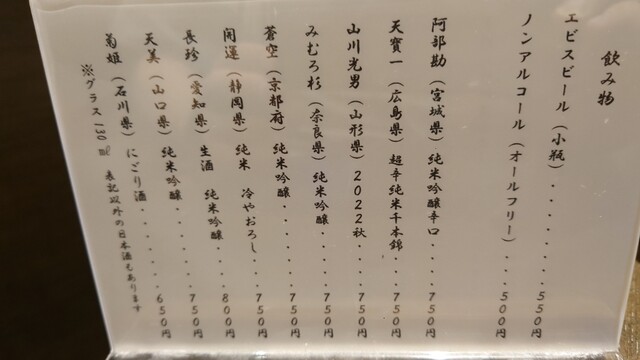 飲み物
エビスビール（小瓶）・・・・・・・550円
ノンアルコール（オールフリー）・・・・500円
阿部勘（宮城県）純米吟醸辛口・・・・750円
天寶一（広島県）超辛純米千本錦・・・・750円
山川光男（山形県）2022秋・・・・・750円
みむろ杉（奈良県）純米吟醸・・・・・750円
蒼空（京都府）純米吟醸・・・・・・750円
開運（静岡県）純米　冷やおろし・・・750円
長珍（愛知県）生酒　純米吟醸・・・・800円
天美（山口県）純米吟醸・・・・・・750円
菊姫（石川県）にごり酒・・・・・・650円
※グラス130ml　表記以外の日本酒もあります